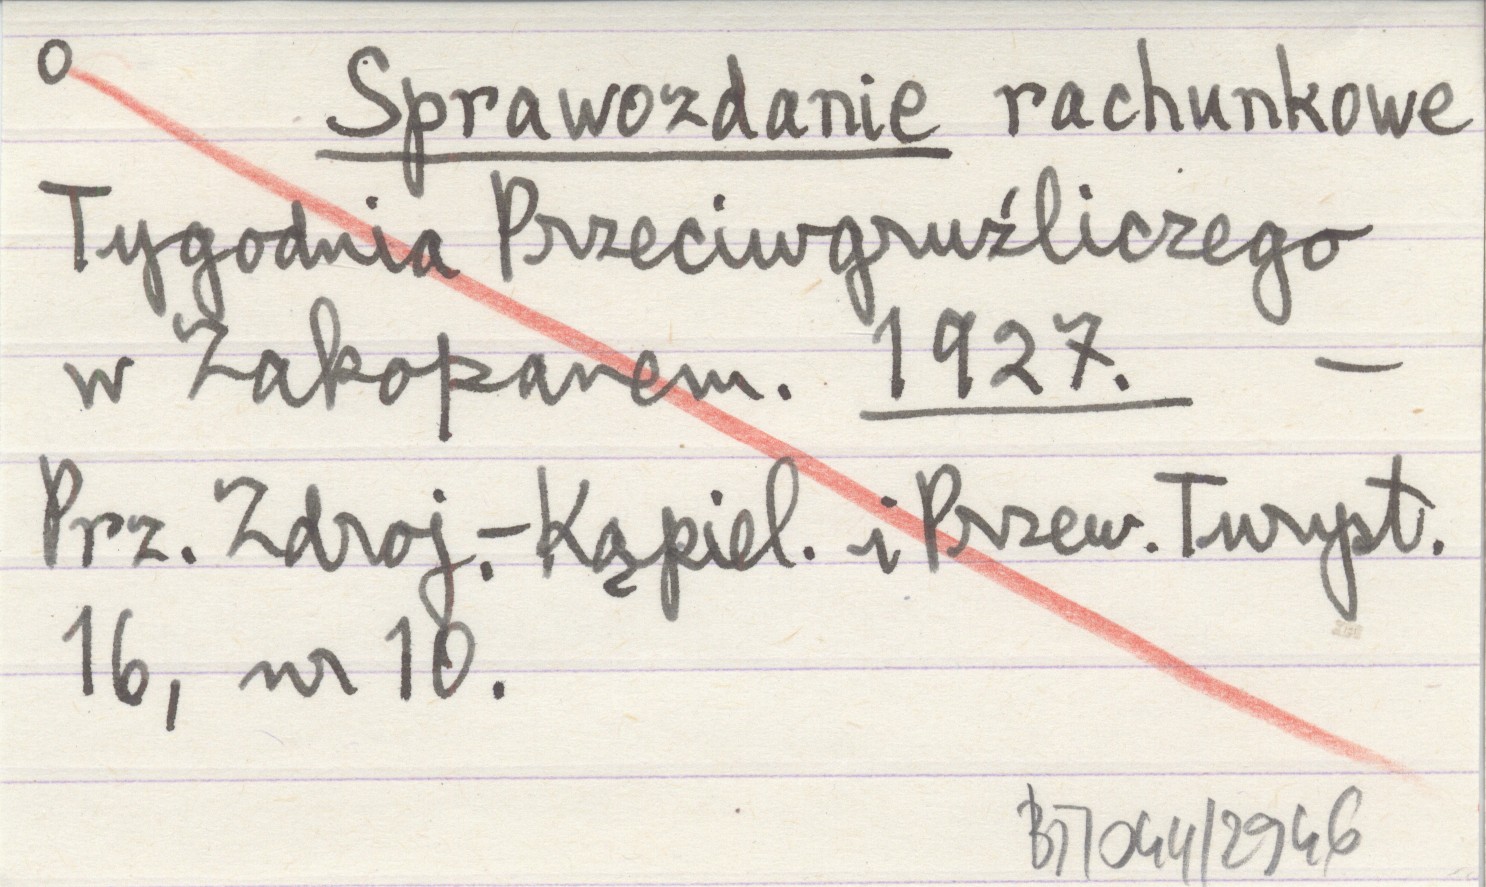 o Sprawozdanie rachunkowe
Tygodnia Przeciwgruźliczego
w Zakopanem. 1927. —
Prz. Zdroj.-Kąpiel. i Przew. Turyst.
16, nr 10.
BT/044/2946